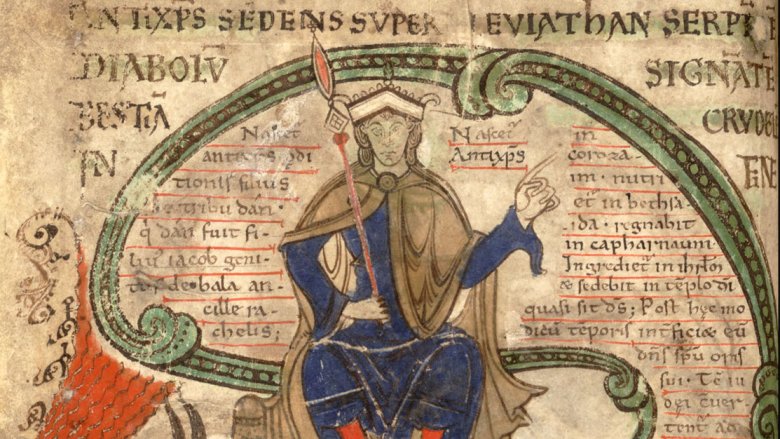 ANTIXP̄S SEDENS SUPER LEVIATHAN SERPE
DIABOLV̄ SIGNĀTĒ
BESTIĀ CRUDE
IN FINE
Nascet̄
antixp̄s p̄di
tionis filius
de tribu dan ·
q̄ dan fuit fi
liu' iacob geni
tus de bala an
cille ra
chelis;
Nascet̄
Antixp̄s
in
coroza
im · nutri
et̄ in bethsa
ida · regnabit
in capharnaum ·
Ingrediet̄ in ihrl̄m
& sedebit in tēplo di
quasi sit ds̄; Post hęc mo
dicū tēporis int̄ficiet eū
dn̄s sp̄u oris
sui · Tc̄ iu
dei c̄uer
tent̄ ad